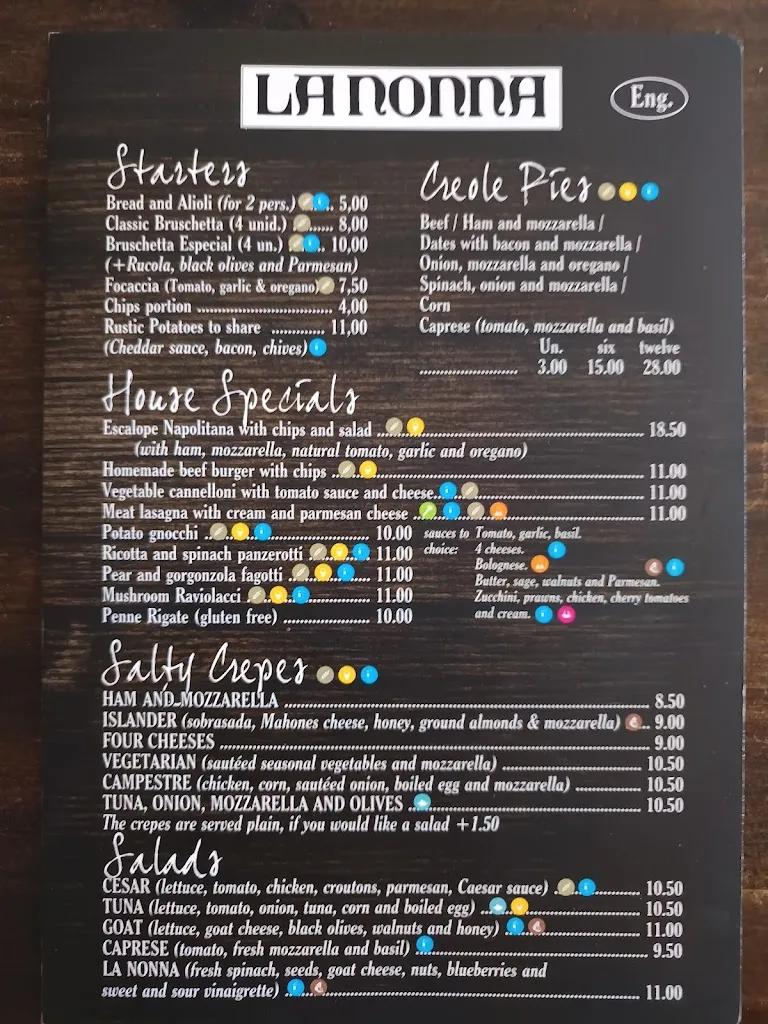 LA NONNA
Eng.
Starters
Bread and Alioli (for 2 pers.) .. 5,00
Classic Bruschetta (4 unid.) ...... 8,00
Bruschetta Especial (4 un.) .. 10,00
(+Rucola, black olives and Parmesan)
Focaccia (Tomato, garlic & oregano) 7,50
Chips portion .................................. 4,00
Rustic Potatoes to share ............. 11,00
(Cheddar sauce, bacon, chives)
Creole Pies
Beef / Ham and mozzarella /
Dates with bacon and mozzarella /
Onion, mozzarella and oregano /
Spinach, onion and mozzarella /
Corn
Caprese (tomato, mozzarella and basil)
Un. six twelve
........................ 3.00 15.00 28.00
House Specials
Escalope Napolitana with chips and salad ................ 18.50
(with ham, mozzarella, natural tomato, garlic and oregano)
Homemade beef burger with chips ................ 11.00
Vegetable cannelloni with tomato sauce and cheese ................ 11.00
Meat lasagna with cream and parmesan cheese ................ 11.00
Potato gnocchi ................ 10.00
Ricotta and spinach panzerotti ................ 11.00
Pear and gorgonzola fagotti ................ 11.00
Mushroom Raviolacci ................ 11.00
Penne Rigate (gluten free) ..................... 10.00
sauces to choice:
Tomato, garlic, basil.
4 cheeses.
Bolognese.
Butter, sage, walnuts and Parmesan.
Zucchini, prawns, chicken, cherry tomatoes
and cream.
Salty Crepes
HAM AND MOZZARELLA ................ 8.50
ISLANDER (sobrasada, Mahones cheese, honey, ground almonds & mozzarella) ... 9.00
FOUR CHEESES ................ 9.00
VEGETARIAN (sautéed seasonal vegetables and mozzarella) ................ 10.50
CAMPESTRE (chicken, corn, sautéed onion, boiled egg and mozzarella) ................ 10.50
TUNA, ONION, MOZZARELLA AND OLIVES ................ 10.50
The crepes are served plain, if you would like a salad +1.50
Salads
CESAR (lettuce, tomato, chicken, croutons, parmesan, Caesar sauce) ................ 10.50
TUNA (lettuce, tomato, onion, tuna, corn and boiled egg) ................ 10.50
GOAT (lettuce, goat cheese, black olives, walnuts and honey) ................ 11.00
CAPRESE (tomato, fresh mozzarella and basil) ................ 9.50
LA NONNA (fresh spinach, seeds, goat cheese, nuts, blueberries and
sweet and sour vinaigrette) ................ 11.00